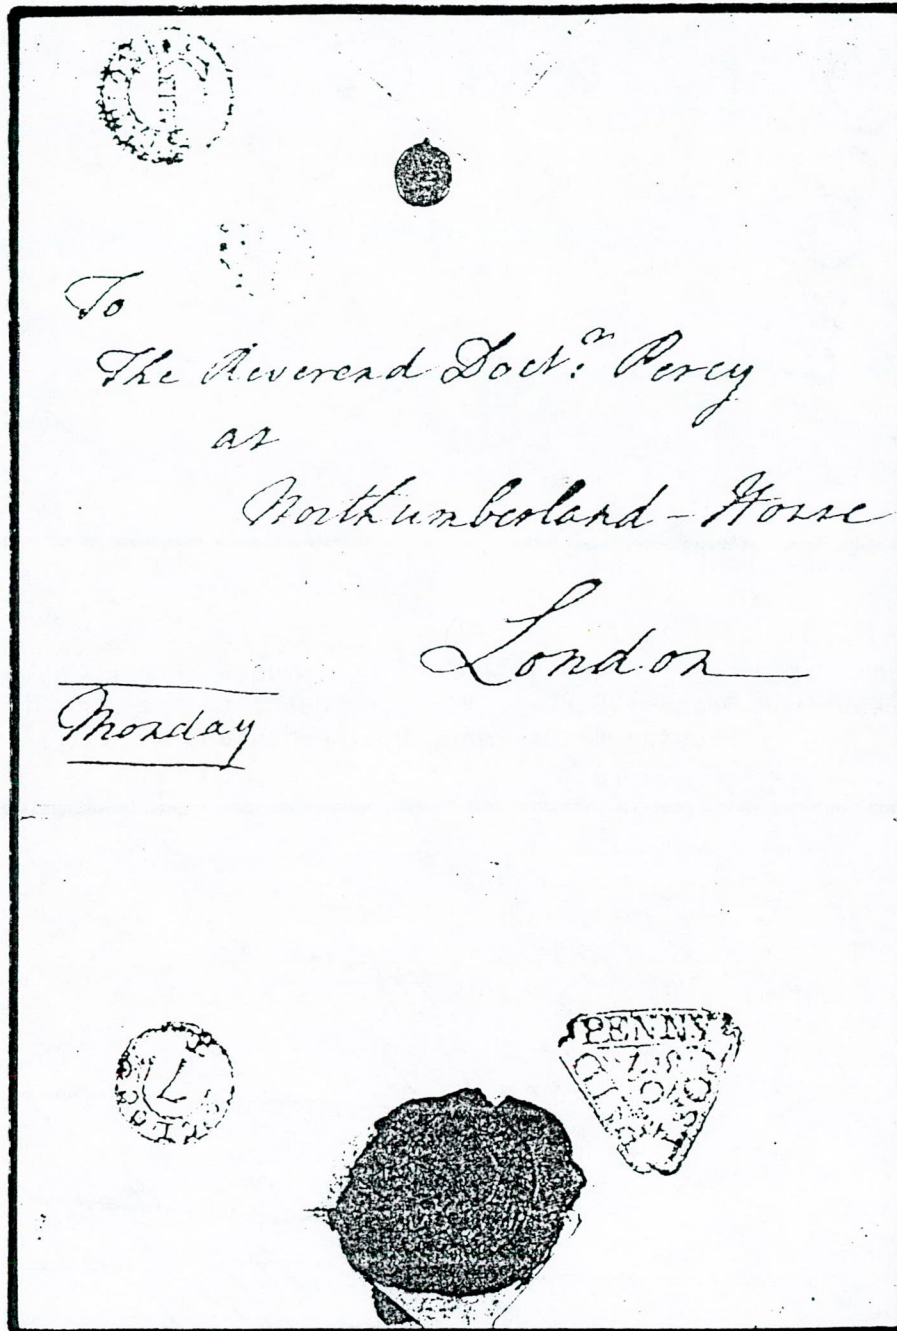 To
The Reverend Doctr. Percy
at
Northumberland-House
London
Monday
7
PENNY
POST